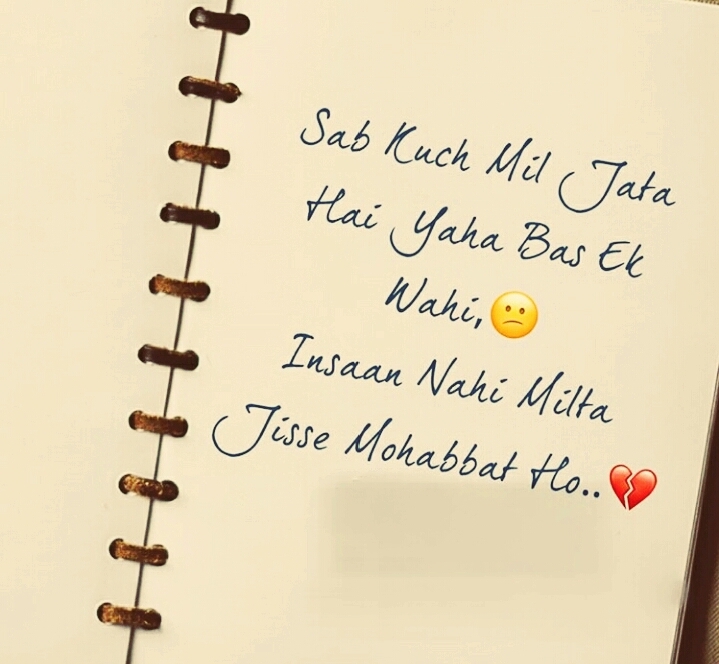 Sab Kuch Mil Jata
Hai Yaha Bas Ek
Wahi,😕
Insaan Nahi Milta
Jisse Mohabbat Ho..💔